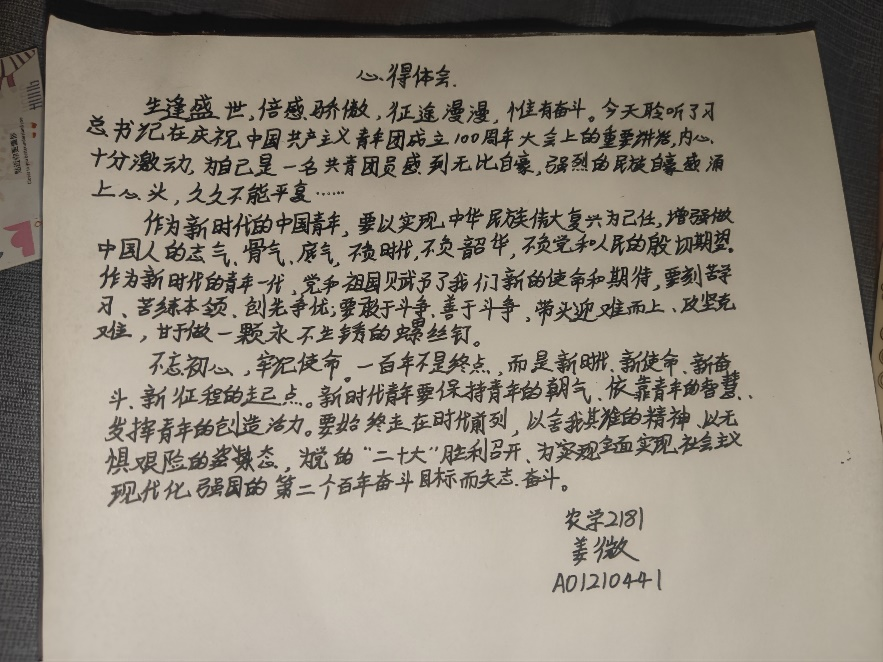 心得体会.
生逢盛世,倍感骄傲,征途漫漫,惟有奋斗。今天聆听了习
总书记在庆祝中国共产主义青年团成立100周年大会上的重要讲话,内心
十分激动,为自己是一名共青团员感到无比自豪,强烈的民族自豪感涌
上心头,久久不能平复……
作为新时代的中国青年,要以实现中华民族伟大复兴为己任,增强做
中国人的志气、骨气、底气,不负时代,不负韶华,不负党和人民的殷切期望。
作为新时代的青年一代,党和祖国赋予了我们新的使命和期待,要刻苦学
习、苦练本领、创先争优;要敢于斗争、善于斗争,带头迎难而上、攻坚克
难,甘于做一颗永不生锈的螺丝钉。
不忘初心,牢记使命。一百年不是终点,而是新时代、新使命、新奋
斗、新征程的起点。新时代青年要保持青年的朝气、依靠青年的智慧、
发挥青年的创造活力。要始终走在时代前列,以舍我其难的精神、以无
惧艰险的姿态,为党的"二十大"胜利召开、为实现全面实现社会主义
现代化强国的第二个百年奋斗目标而矢志奋斗。
农学2181
姜微
A01210441